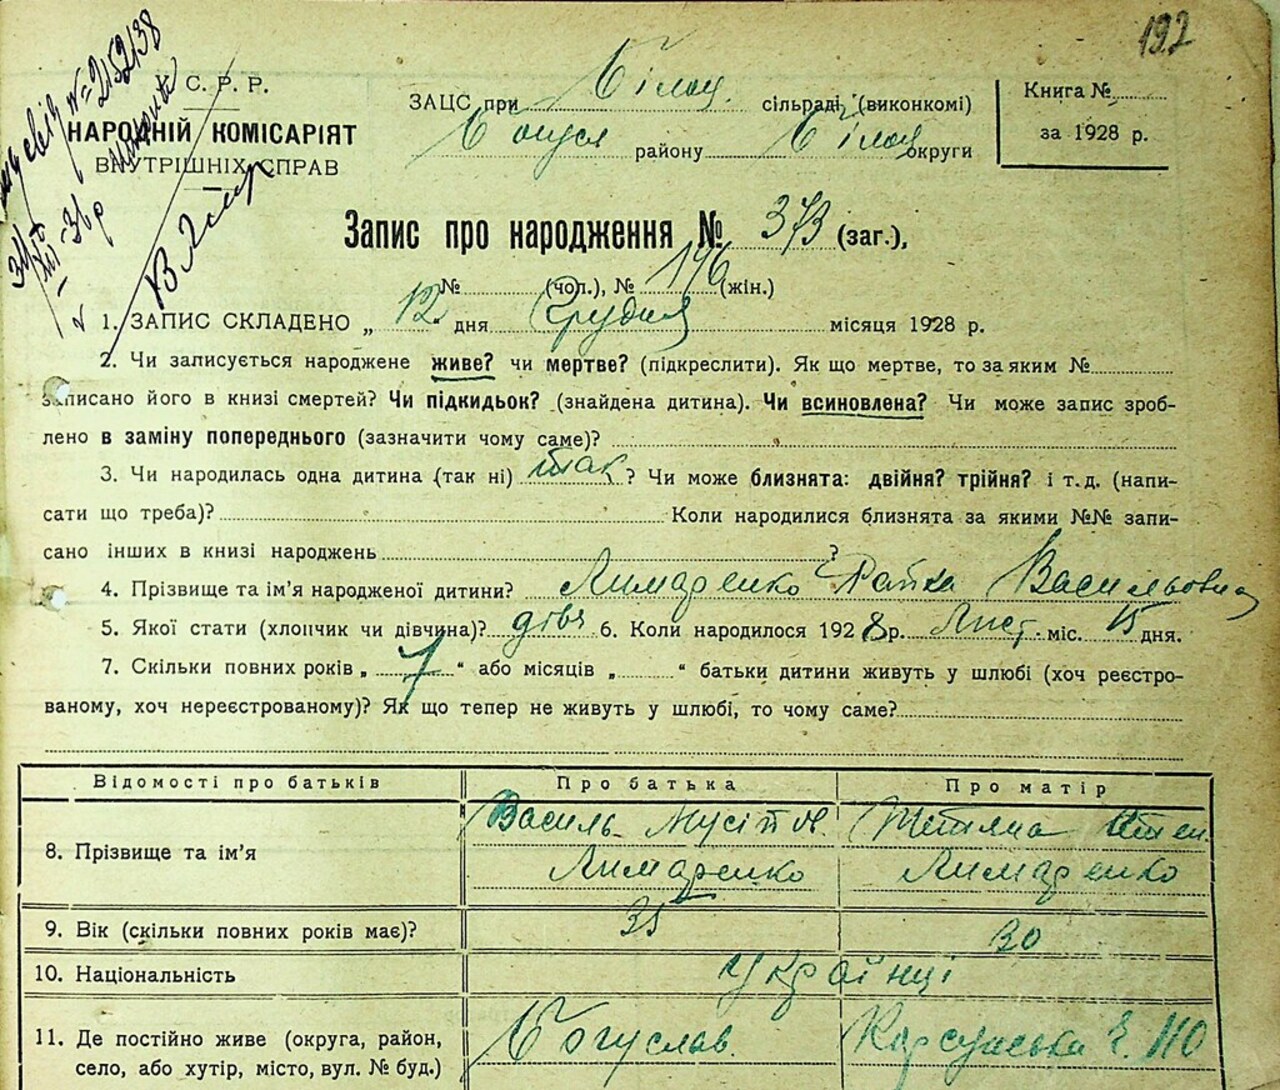 192
У. С. Р. Р.
НАРОДНІЙ КОМІСАРІЯТ
ВНУТРІШНІХ СПРАВ
№ 2152138
ЗАЦС при Білоц. сільраді (виконкомі)
Богусл району Білоц округи
Книга №
за 1928 р.
Запис про народження № 373 (заг.),
№ (чол.), № 196 (жін.)
1. ЗАПИС СКЛАДЕНО „ 12 " дня Грудня місяця 1928 р.
2. Чи записується народжене живе? чи мертве? (підкреслити). Як що мертве, то за яким №
записано його в книзі смертей? Чи підкидьок? (знайдена дитина). Чи всиновлена? Чи може запис зроб-
лено в заміну попереднього (зазначити чому саме)?
3. Чи народилась одна дитина (так ні) так ? Чи може близнята: двійня? трійня? і т. д. (напи-
сати що треба)? Коли народилися близнята за якими №№ запи-
сано інших в книзі народжень ?
4. Прізвище та ім'я народженої дитини? Лимаренко Раїна Васильовна
5. Якої стати (хлопчик чи дівчина)? дівч 6. Коли народилося 1928 р. Лист. міс. 15 дня.
7. Скільки повних років „ 7 " або місяців „ " батьки дитини живуть у шлюбі (хоч реєстро-
ваному, хоч нереєстрованому)? Як що тепер не живуть у шлюбі, то чому саме?
Відомості про батьків Про батька Про матір
8. Прізвище та ім'я Василь Мусійов. Лимаренко Тетяна Степ. Лимаренко
9. Вік (скільки повних років має)? 35 30
10. Національність Українці
11. Де постійно живе (округа, район, Богуслав. Корсунська 2. 110
село, або хутір, місто, вул. № буд.)